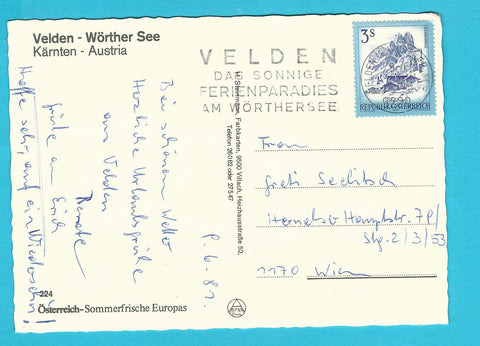 Velden - Wörther See
Kärnten - Austria
VELDEN
DAS SONNIGE
FERIENPARADIES
AM WÖRTHERSEE
3 S
REPUBLIK ÖSTERREICH
Bei schönem Wetter
Herzliche Urlaubsgrüße
aus Velden
Renate
Grüße an Erich
Hoffe sehr, auf ein Wiedersehn!
P. 6. 81.
Farbkarten, 9500 Villach, Herzhausstraße 52,
Telefon 26062 oder 27547
Frau
Greti
Hernalser Hauptstr. 7P/
Stg. 2/3/53
1170 Wien
224
Österreich-Sommerfrische Europas